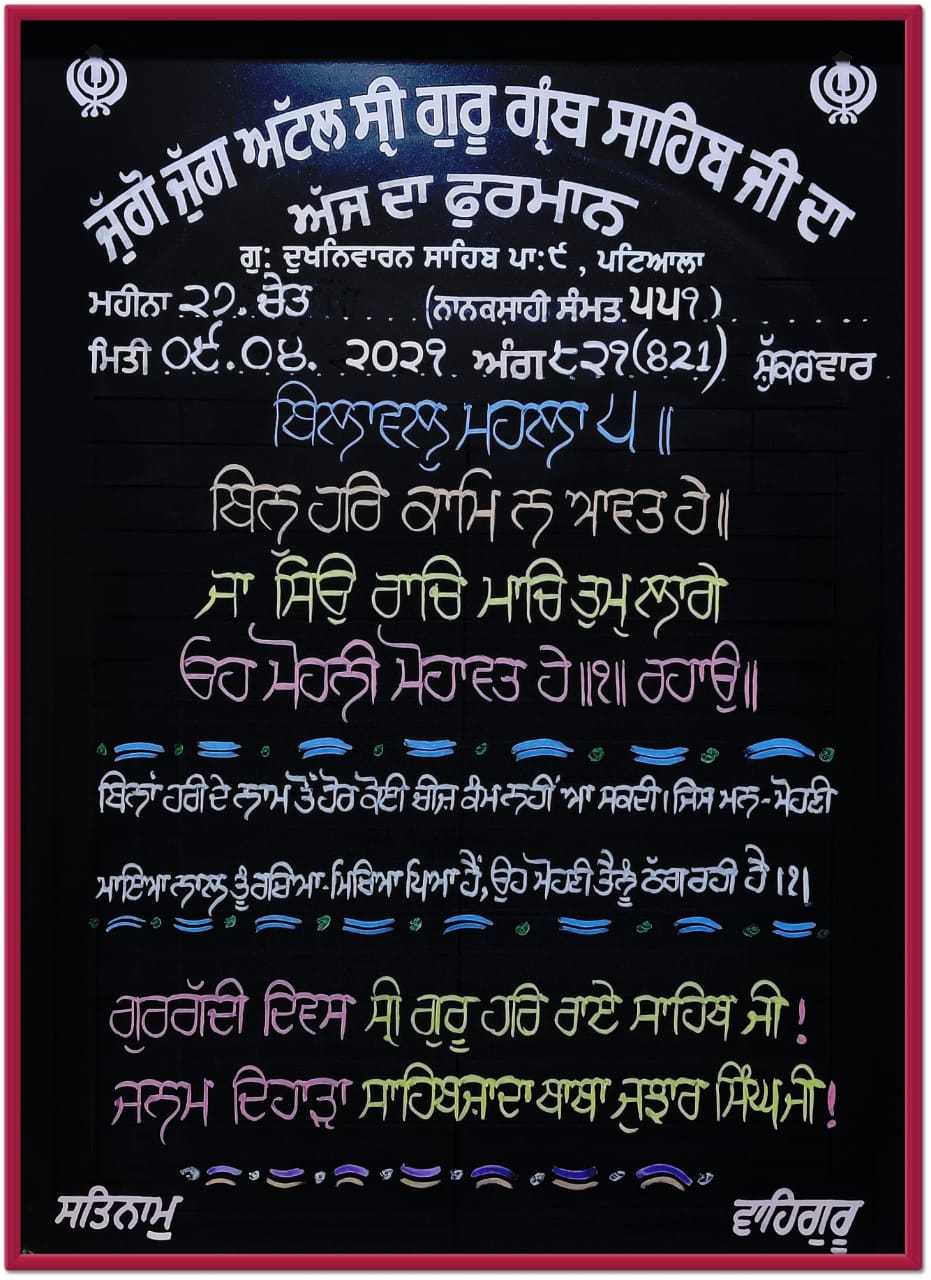 ਜੁੱਗੋ ਜੁੱਗ ਅੱਟਲ ਸ੍ਰੀ ਗੁਰੂ ਗ੍ਰੰਥ ਸਾਹਿਬ ਜੀ ਦਾ
ਅੱਜ ਦਾ ਫੁਰਮਾਨ
ਗੁ: ਦੁਖਨਿਵਾਰਨ ਸਾਹਿਬ ਪਾ:੯ , ਪਟਿਆਲਾ
ਮਹੀਨਾ ੨੭. ਚੇਤ (ਨਾਨਕਸ਼ਾਹੀ ਸੰਮਤ ੫੫੧)
ਮਿਤੀ ੦੯.੦੪. ੨੦੨੧ ਅੰਗ ੮੨੧(821) ਸ਼ੁੱਕਰਵਾਰ
ਬਿਲਾਵਲੁ ਮਹਲਾ ੫ ॥
ਬਿਨੁ ਹਰਿ ਕਾਮਿ ਨ ਆਵਤ ਹੇ॥
ਜਾ ਸਿਉ ਰਾਚਿ ਮਾਚਿ ਤੁਮ੍ ਲਾਗੇ
ਓਹ ਮੋਹਨੀ ਮੋਹਾਵਤ ਹੇ॥੧॥ ਰਹਾਉ॥
ਬਿਨਾਂ ਹਰੀ ਦੇ ਨਾਮ ਤੋਂ ਹੋਰ ਕੋਈ ਚੀਜ਼ ਕੰਮ ਨਹੀਂ ਆ ਸਕਦੀ। ਜਿਸ ਮਨ-ਮੋਹਣੀ
ਮਾਇਆ ਨਾਲ ਤੂੰ ਰਚਿਆ-ਮਿਚਿਆ ਪਿਆ ਹੈਂ, ਉਹ ਮੋਹਣੀ ਤੈਨੂੰ ਠੱਗ ਰਹੀ ਹੈ।੧।
ਗੁਰਗੱਦੀ ਦਿਵਸ ਸ੍ਰੀ ਗੁਰੂ ਹਰਿ ਰਾਏ ਸਾਹਿਬ ਜੀ!
ਜਨਮ ਦਿਹਾੜਾ ਸਾਹਿਬਜ਼ਾਦਾ ਬਾਬਾ ਜੁਝਾਰ ਸਿੰਘ ਜੀ!
ਸਤਿਨਾਮੁ ਵਾਹਿਗੁਰੂ